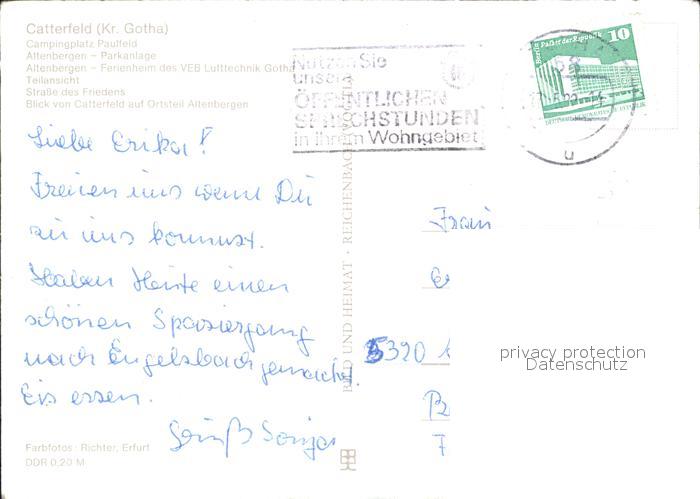 Catterfeld (Kr. Gotha)
Campingplatz Paulfeld
Altenbergen – Parkanlage
Altenbergen – Ferienheim des VEB Lufttechnik Gotha
Teilansicht
Straße des Friedens
Blick von Catterfeld auf Ortsteil Altenbergen
Nutzen Sie
unsere
ÖFFENTLICHEN
SPRECHSTUNDEN
in Ihrem Wohngebiet
10
Berlin Palast der Republik
u
Liebe Erika!
Freuen uns wenn Du
zu uns kommst.
Haben Heute einen
schönen Spaziergang
nach Engelsbach gemacht.
Eis essen.
Gruß Sonja
BILD UND HEIMAT · REICHENBACH
Frau
5320
privacy protection
Datenschutz
Farbfotos: Richter, Erfurt
DDR 0,20 M